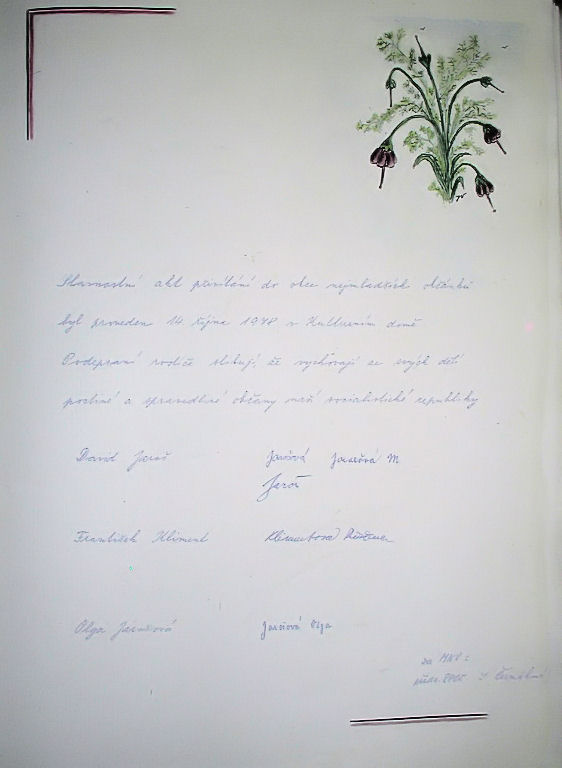 Slavnostní akt přivítání do obce nejmladších občánků
byl proveden 14. října 1978 v Kulturním domě
Podepsaní rodiče slibují, že vychovají ze svých dětí
poctivé a spravedlivé občany naší socialistické republiky
David Jaroš Jarošová Jarošová M.
Jaroš
František Kliment Klimentová Růžena
Olga Jarošová Jarošová Olga
za MNV: